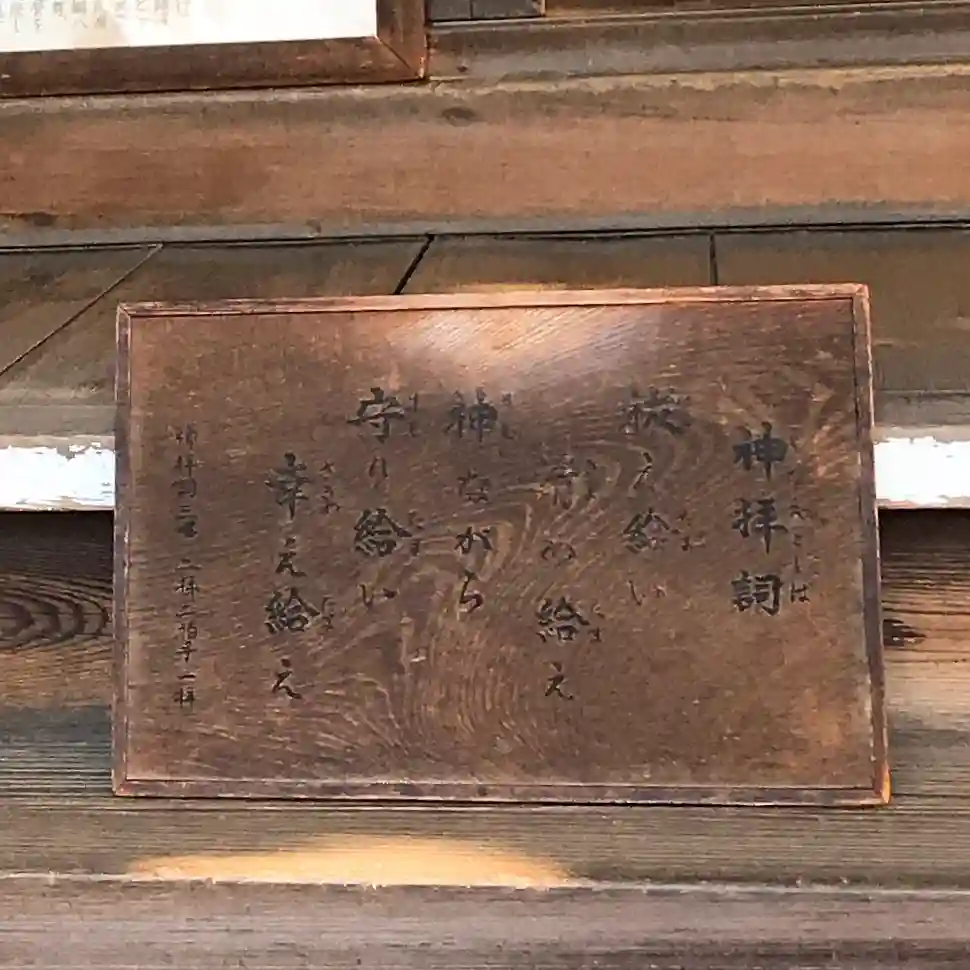 神拝詞
祓え給い
清め給え
神ながら
守り給い
幸え給え
神拝詞三唱 二拝二拍手一拝